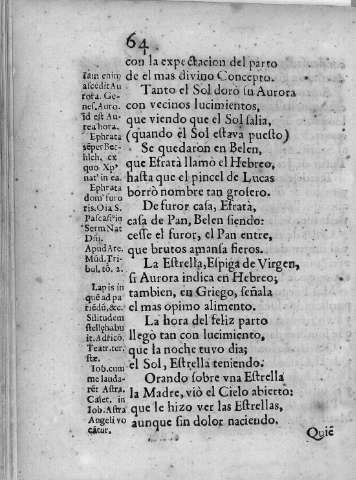 64
con la expectacion del parto
de el mas divino Concepto.
Tanto el Sol dorò su Aurora
con vecinos lucimientos,
que viendo que el Sol salia,
(quando el Sol estava puesto)
Se quedaron en Belen,
que Efratà llamò el Hebreo,
hasta que el pincel de Lucas
borrò nombre tan grosero.
De furor casa, Efratà,
casa de Pan, Belen siendo:
cesse el furor, el Pan entre,
que brutos amansa fieros.
La Estrella, Espiga de Virgen,
si Aurora indica en Hebreo;
tambien, en Griego, señala
el mas opimo alimento.
La hora del feliz parto
llegò tan con lucimiento,
que la noche tuvo dia;
el Sol, Estrella teniendo.
Orando sobre vna Estrella
la Madre, viò el Cielo abierto:
que le hizo ver las Estrellas,
aunque sin dolor naciendo.
Quiē
Iam enim
ascēdit Au
rora. Ge-
nes. Auro.
id est Au-
rea hora.
Ephrata
sēper Ber-
hleh, ex
quo Xpˢ
natˢ in ea.
Ephrata
domˢ furo
ris. Oia S.
Pascasiˢ in
Serm Nat
Dñi.
Apud Are.
Mūd. Tri-
bul. tō. 2.
Lapis in
quē ad pa
riēdū, &c.
Silitudem
stellę habu
it. Adricō.
Teatr. ter.
stæ.
Iob. cum
me lauda-
rēt Astra.
Caiet. in
Iob. Astra
Angeli vo
cātur.